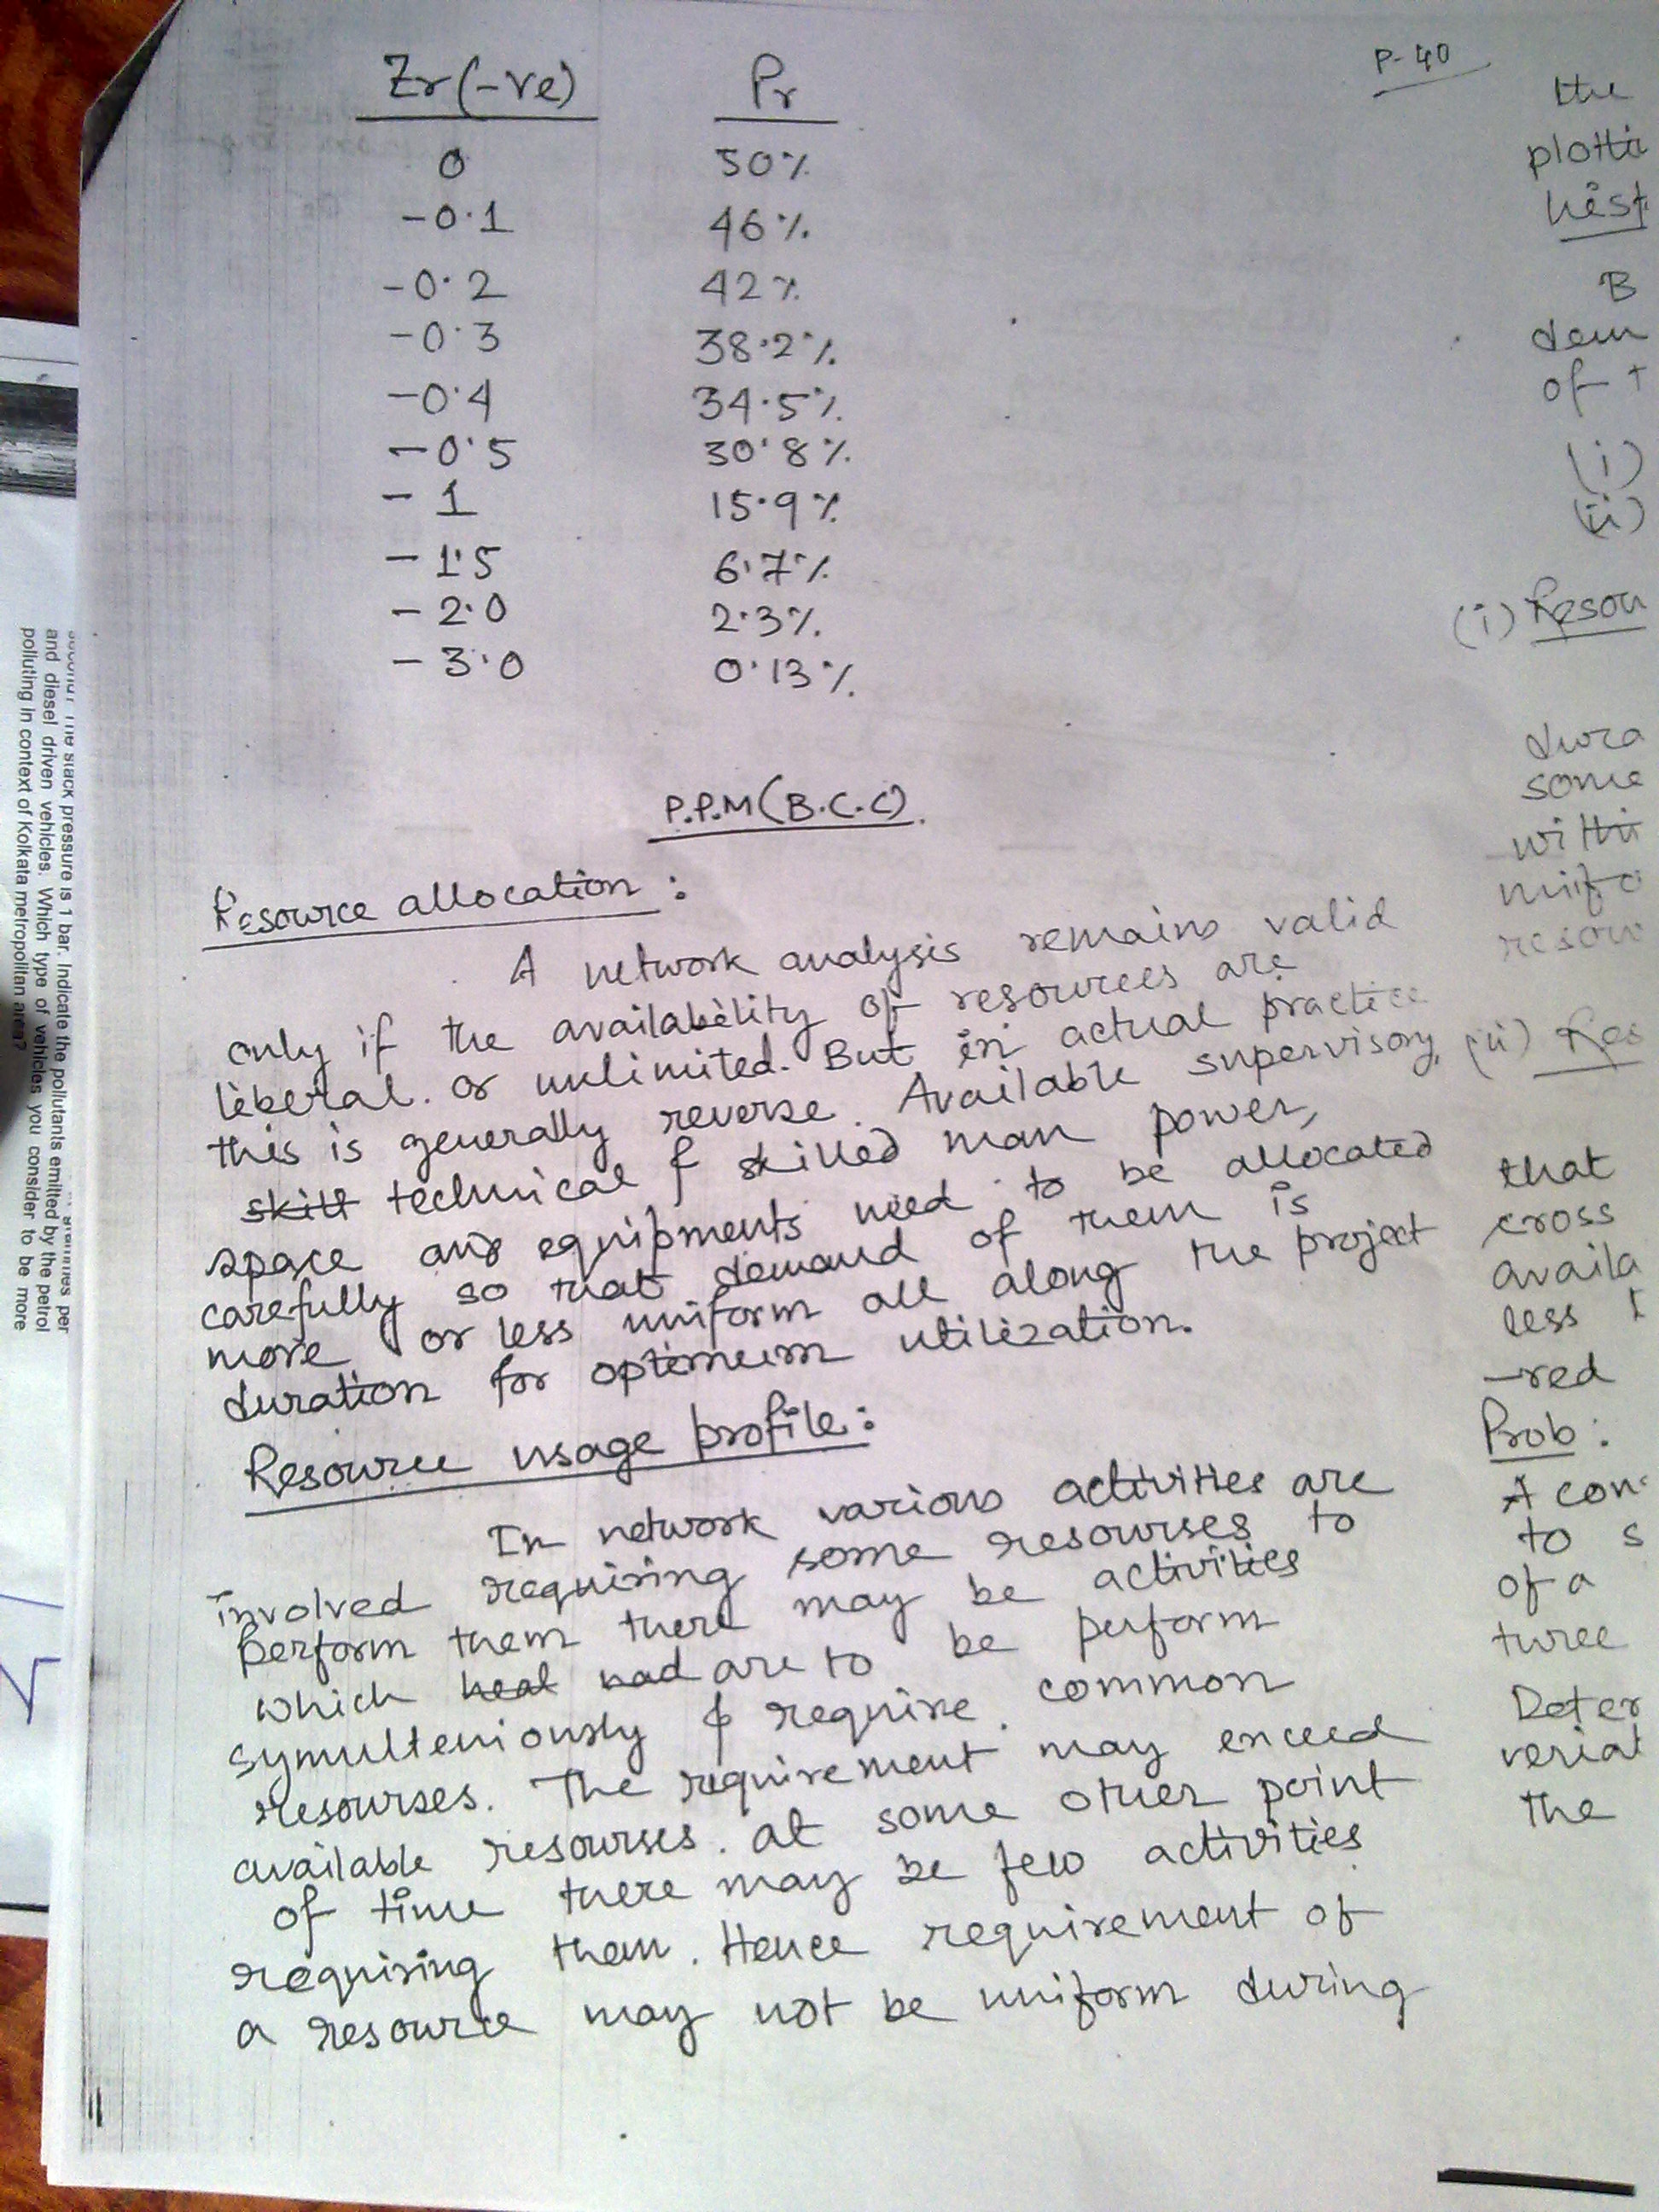 P-40
Zr(-ve) Pr
0 50%
-0.1 46%
-0.2 42%
-0.3 38.2%
-0.4 34.5%
-0.5 30.8%
-1 15.9%
-1.5 6.7%
-2.0 2.3%
-3.0 0.13%
P.P.M(B.C.C)
Resource allocation:
A network analysis remains valid
only if the availability of resources are
liberal. or unlimited. But in actual practice
this is generally reverse. Available supervisory,
skill technical & skilled man power,
space and equipments need to be allocated
carefully so that demand of them is
more or less uniform all along the project
duration for optimum utilization.
Resource usage profile:
In network various activities are
involved requiring some resourses to
perform them there may be activities
which heal had are to be perform
symulteniously & require common
resourses. The requirement may exceed
available resourses. at some other point
of time there may be few activities
requiring them. Hence requirement of
a resource may not be uniform during
the
plotti
hist
B
dem
of t
(i)
(ii)
(i) Resou
dura
some
withi
unifo
resour
(ii) Res
that
cross
availa
less t
-red
Prob:
A con
to s
of a
three
Deter
veriat
the
The stack pressure is 1 bar. Indicate the pollutants emitted by the petrol
and diesel driven vehicles. Which type of vehicles you consider to be more
polluting in context of Kolkata metropolitan area?